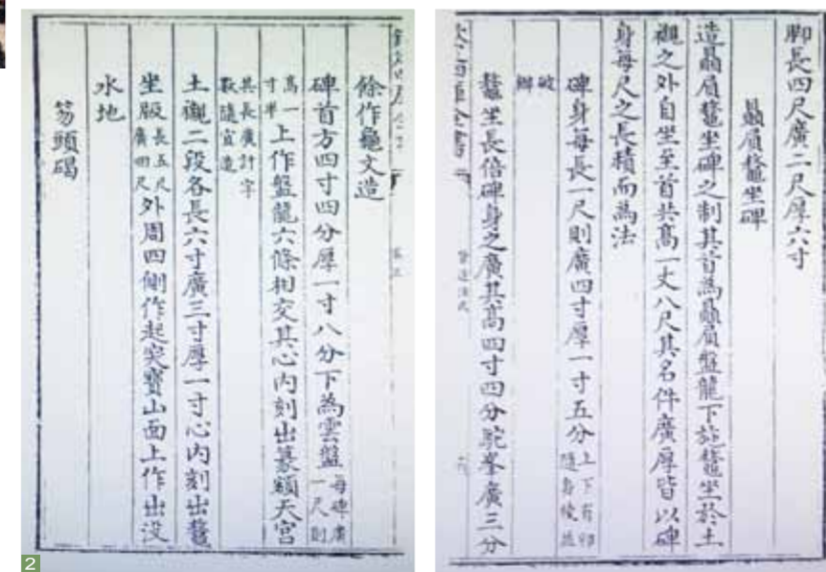 脚長四尺廣二尺厚六寸
贔屓鼇坐碑
造贔屓鼇坐碑之制其首為贔屓盤龍下施鼇坐於土
襯之外自坐至首共高一丈八尺其名件廣厚皆以碑
身每尺之長積而為法
碑身每長一尺則廣四寸厚一寸五分上下有卯隨身棱並
破瓣
鼇坐長倍碑身之廣其高四寸四分駝峯廣三分
餘作龜文造
碑首方四寸四分厚一寸八分下為雲盤每碑廣一尺則
高一寸半上作盤龍六條相交其心内刻出篆額天宫
其長廣計字數隨宜造
土襯二段各長六寸廣三寸厚一寸心内刻出鼇
坐版長五尺廣四尺外周四側作起突寶山面上作出没
水地
笏頭碣
2